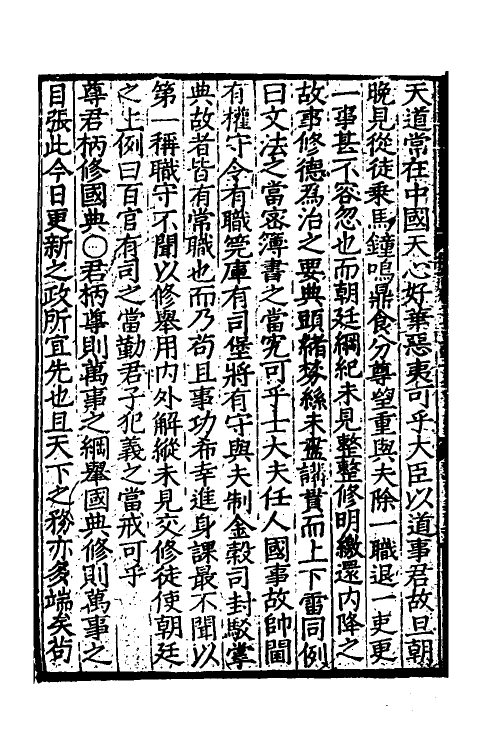 天道常在中國天心好華惡夷可乎大臣以道事君故旦朝
晩見從徒乗馬鐘鳴鼎食分尊望重與夫除一職退一吏更
一事甚不容忽也而朝廷綱紀未見整整修明繳還内降之
故事修德為治之要典頭緒棼絲未盡講貫而上下雷同例
曰文法之當密簿書之當究可乎士大夫任人國事故帥閫
有權守令有職筦庫有司堡將有守與夫制金穀司封駁掌
典故者皆有常職也而乃苟且事功希幸進身課最不聞以
第一稱職守不聞以修舉用内外解縱未見交修徒使朝廷
之上例曰百官有司之當勤君子犯義之當戒可乎
尊君柄修國典〇君柄尊則萬事之綱舉國典修則萬事之
目張此今日更新之政所宜先也且天下之務亦多端矣苟